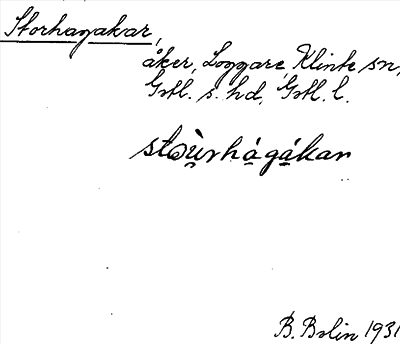 Storhagakar,
åker, Loggare, Klinte sn,
Gotl. s. hd, Gotl. l.
stoùrhágákar
B. Bolin 1931